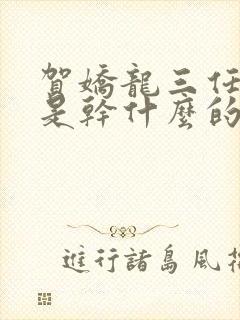 賀嬌龍三任
是幹什麼的
進行諸島風